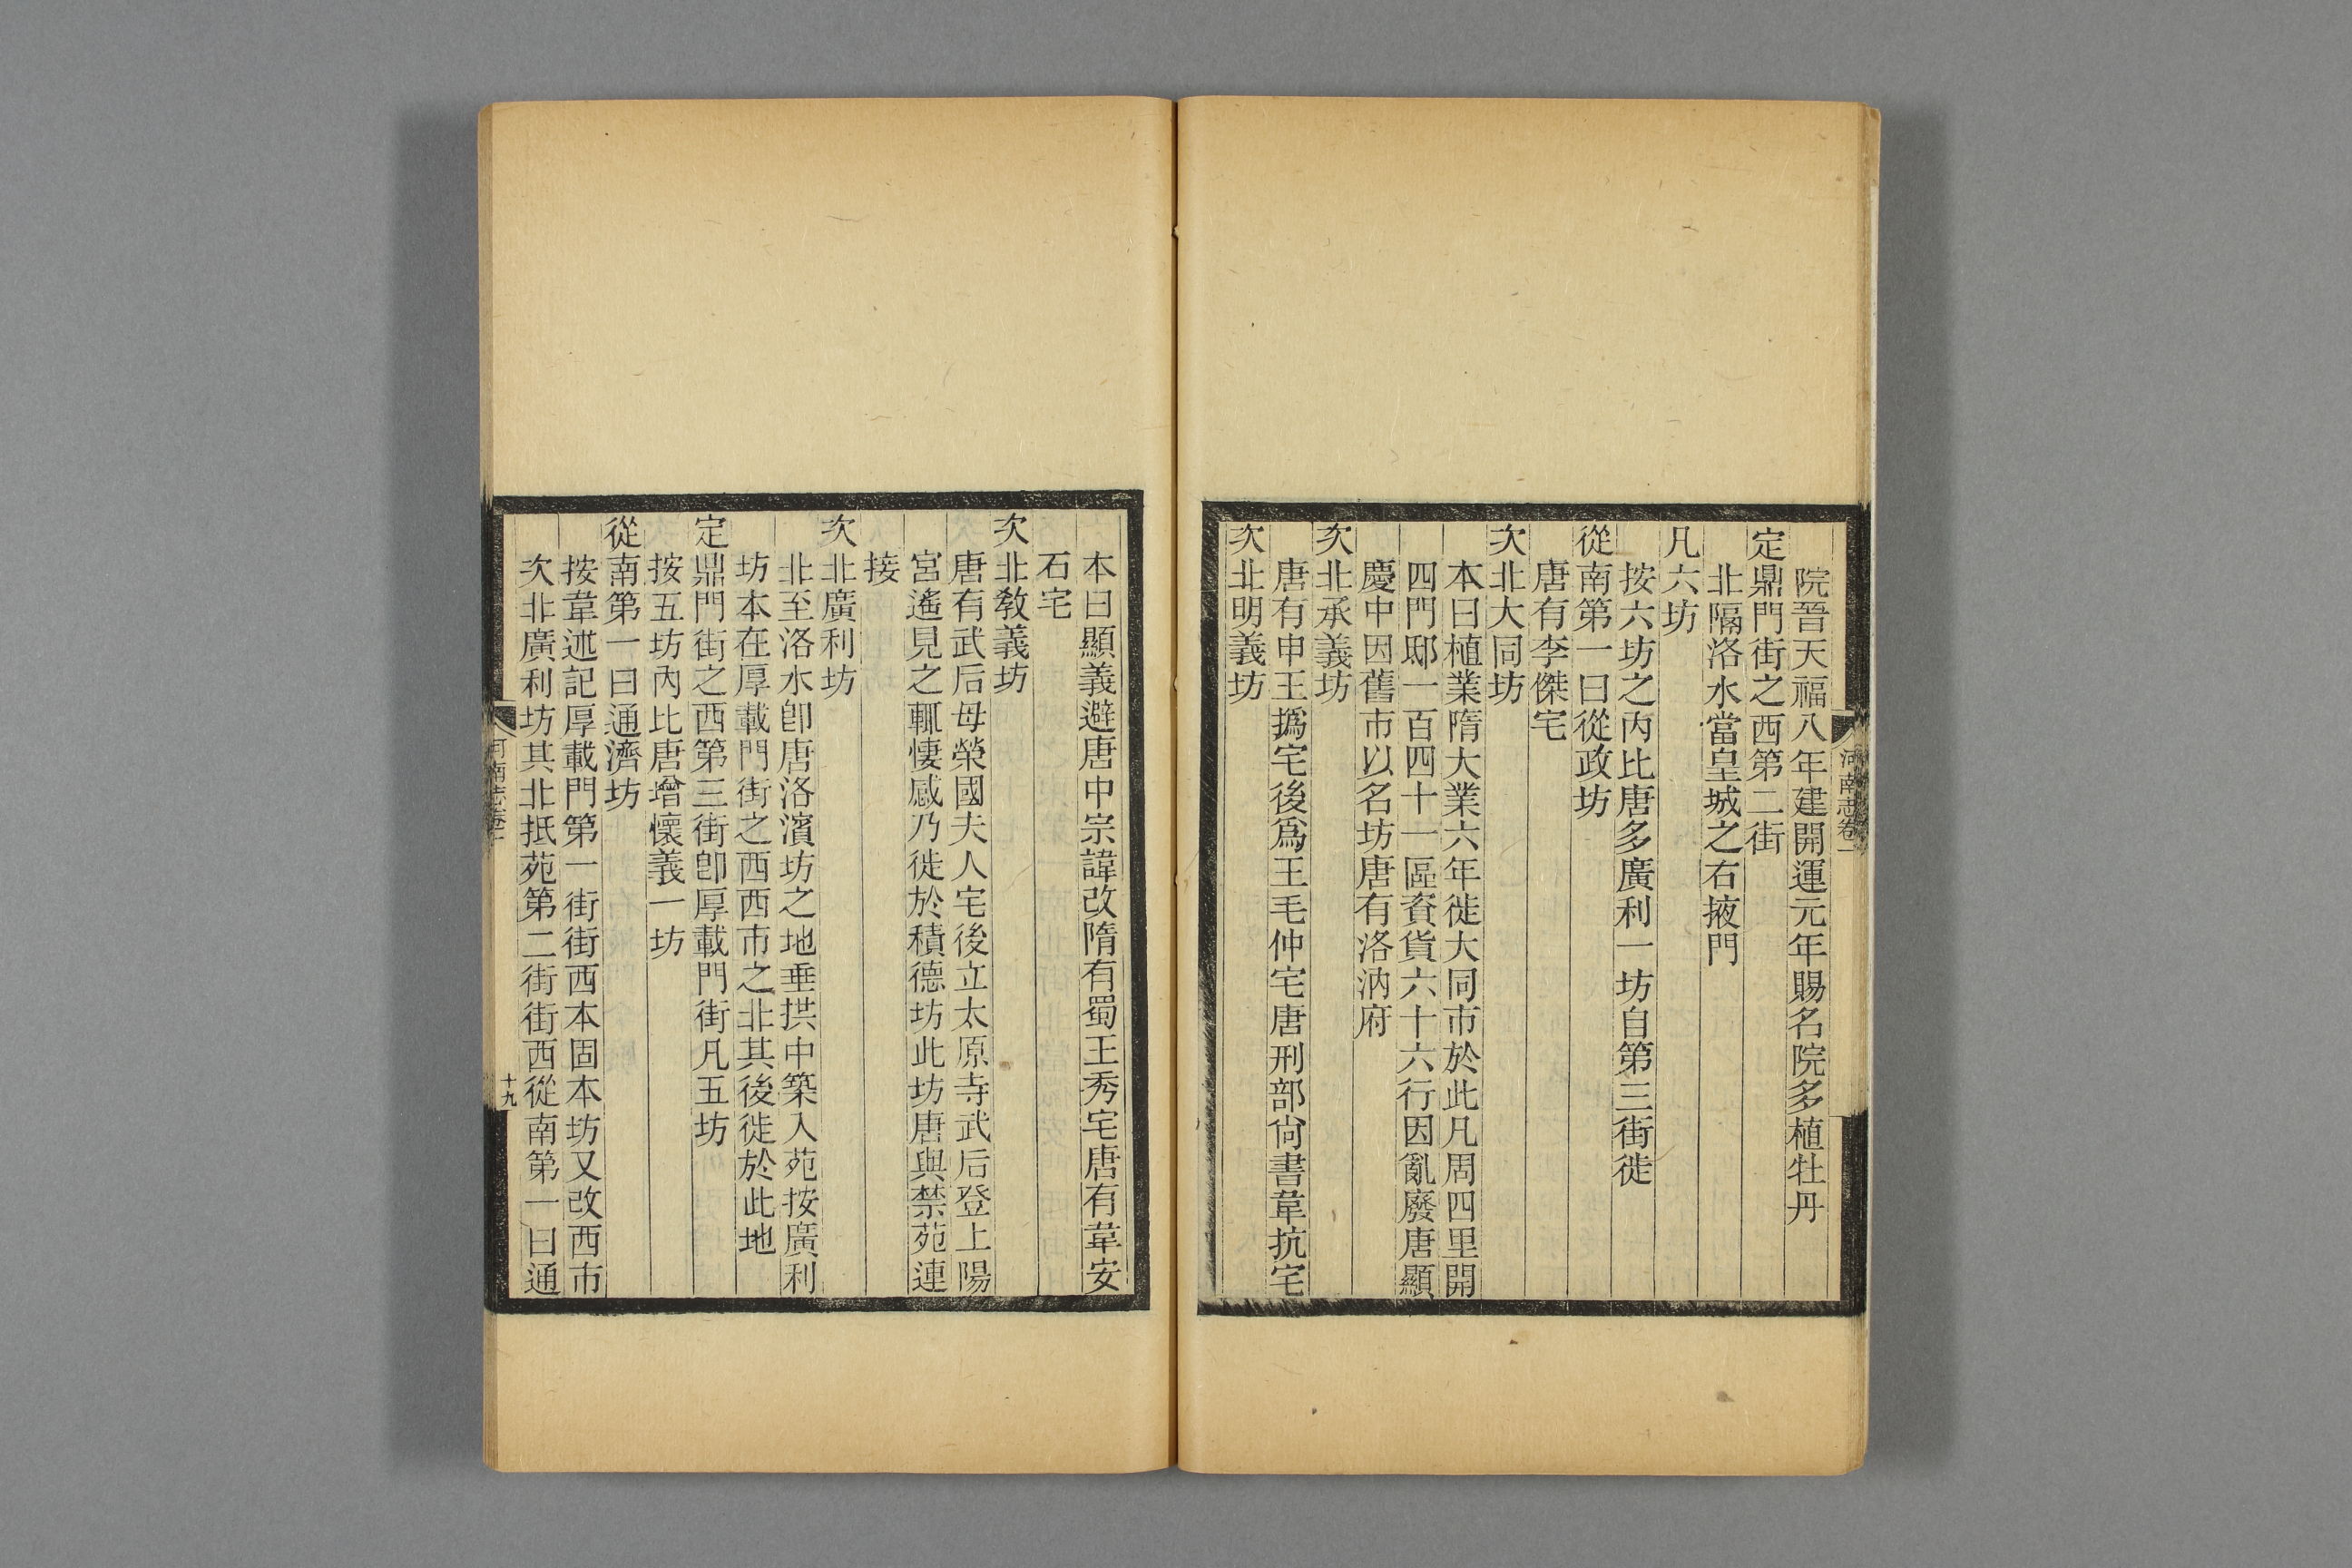 河南志卷一
院晉天福八年建開運元年賜名院多植牡丹
定鼎門街之西第二街
北隔洛水當皇城之右掖門
凡六坊
按六坊之內比唐多廣利一坊自第三街徙
從南第一曰從政坊
唐有李傑宅
次北大同坊
本曰植業隋大業六年徙大同市於此凡周四里開
四門邸一百四十一區資貨六十六行因亂廢唐顯
慶中因舊市以名坊唐有洛汭府
次北承義坊
唐有申王撝宅後爲王毛仲宅唐刑部尙書韋抗宅
次北明義坊
本曰顯義避唐中宗諱改隋有蜀王秀宅唐有韋安
石宅
次北教義坊
唐有武后母榮國夫人宅後立太原寺武后登上陽
宮遙見之輒悽感乃徙於積德坊此坊唐與禁苑連
接
次北廣利坊
北至洛水卽唐洛濱坊之地垂拱中築入苑按廣利
坊本在厚載門街之西西市之北其後徙於此地
定鼎門街之西第三街卽厚載門街凡五坊
按五坊內比唐增懷義一坊
從南第一曰通濟坊
按韋述記厚載門第一街街西本固本坊又改西市
次北廣利坊其北抵苑第二街街西從南第一曰通
河南志卷一
十九